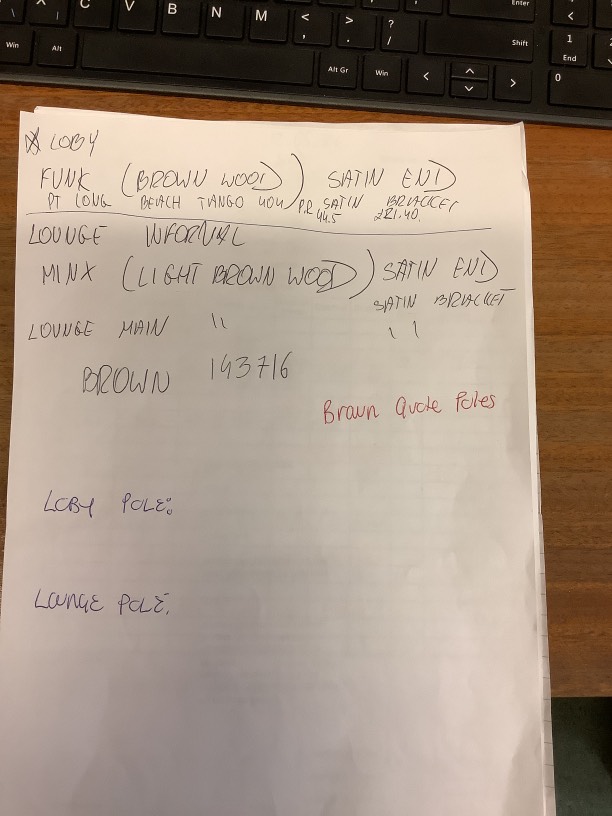 C V B N M < , > . ? / Shift Enter
Win Alt Alt Gr Win < > 1 End 0
LOBY
FUNK (BROWN WOOD) SATIN END
PT LONG BEACH TANGO 404 PR SATIN BRACKET
44.5 221.40.
LOUNGE INFORMAL
MINX (LIGHT BROWN WOOD) SATIN END
SATIN BRACKET
LOUNGE MAIN " "
BROWN 143716
Braun Quote Poles
LOBY POLE:
LOUNGE POLE.